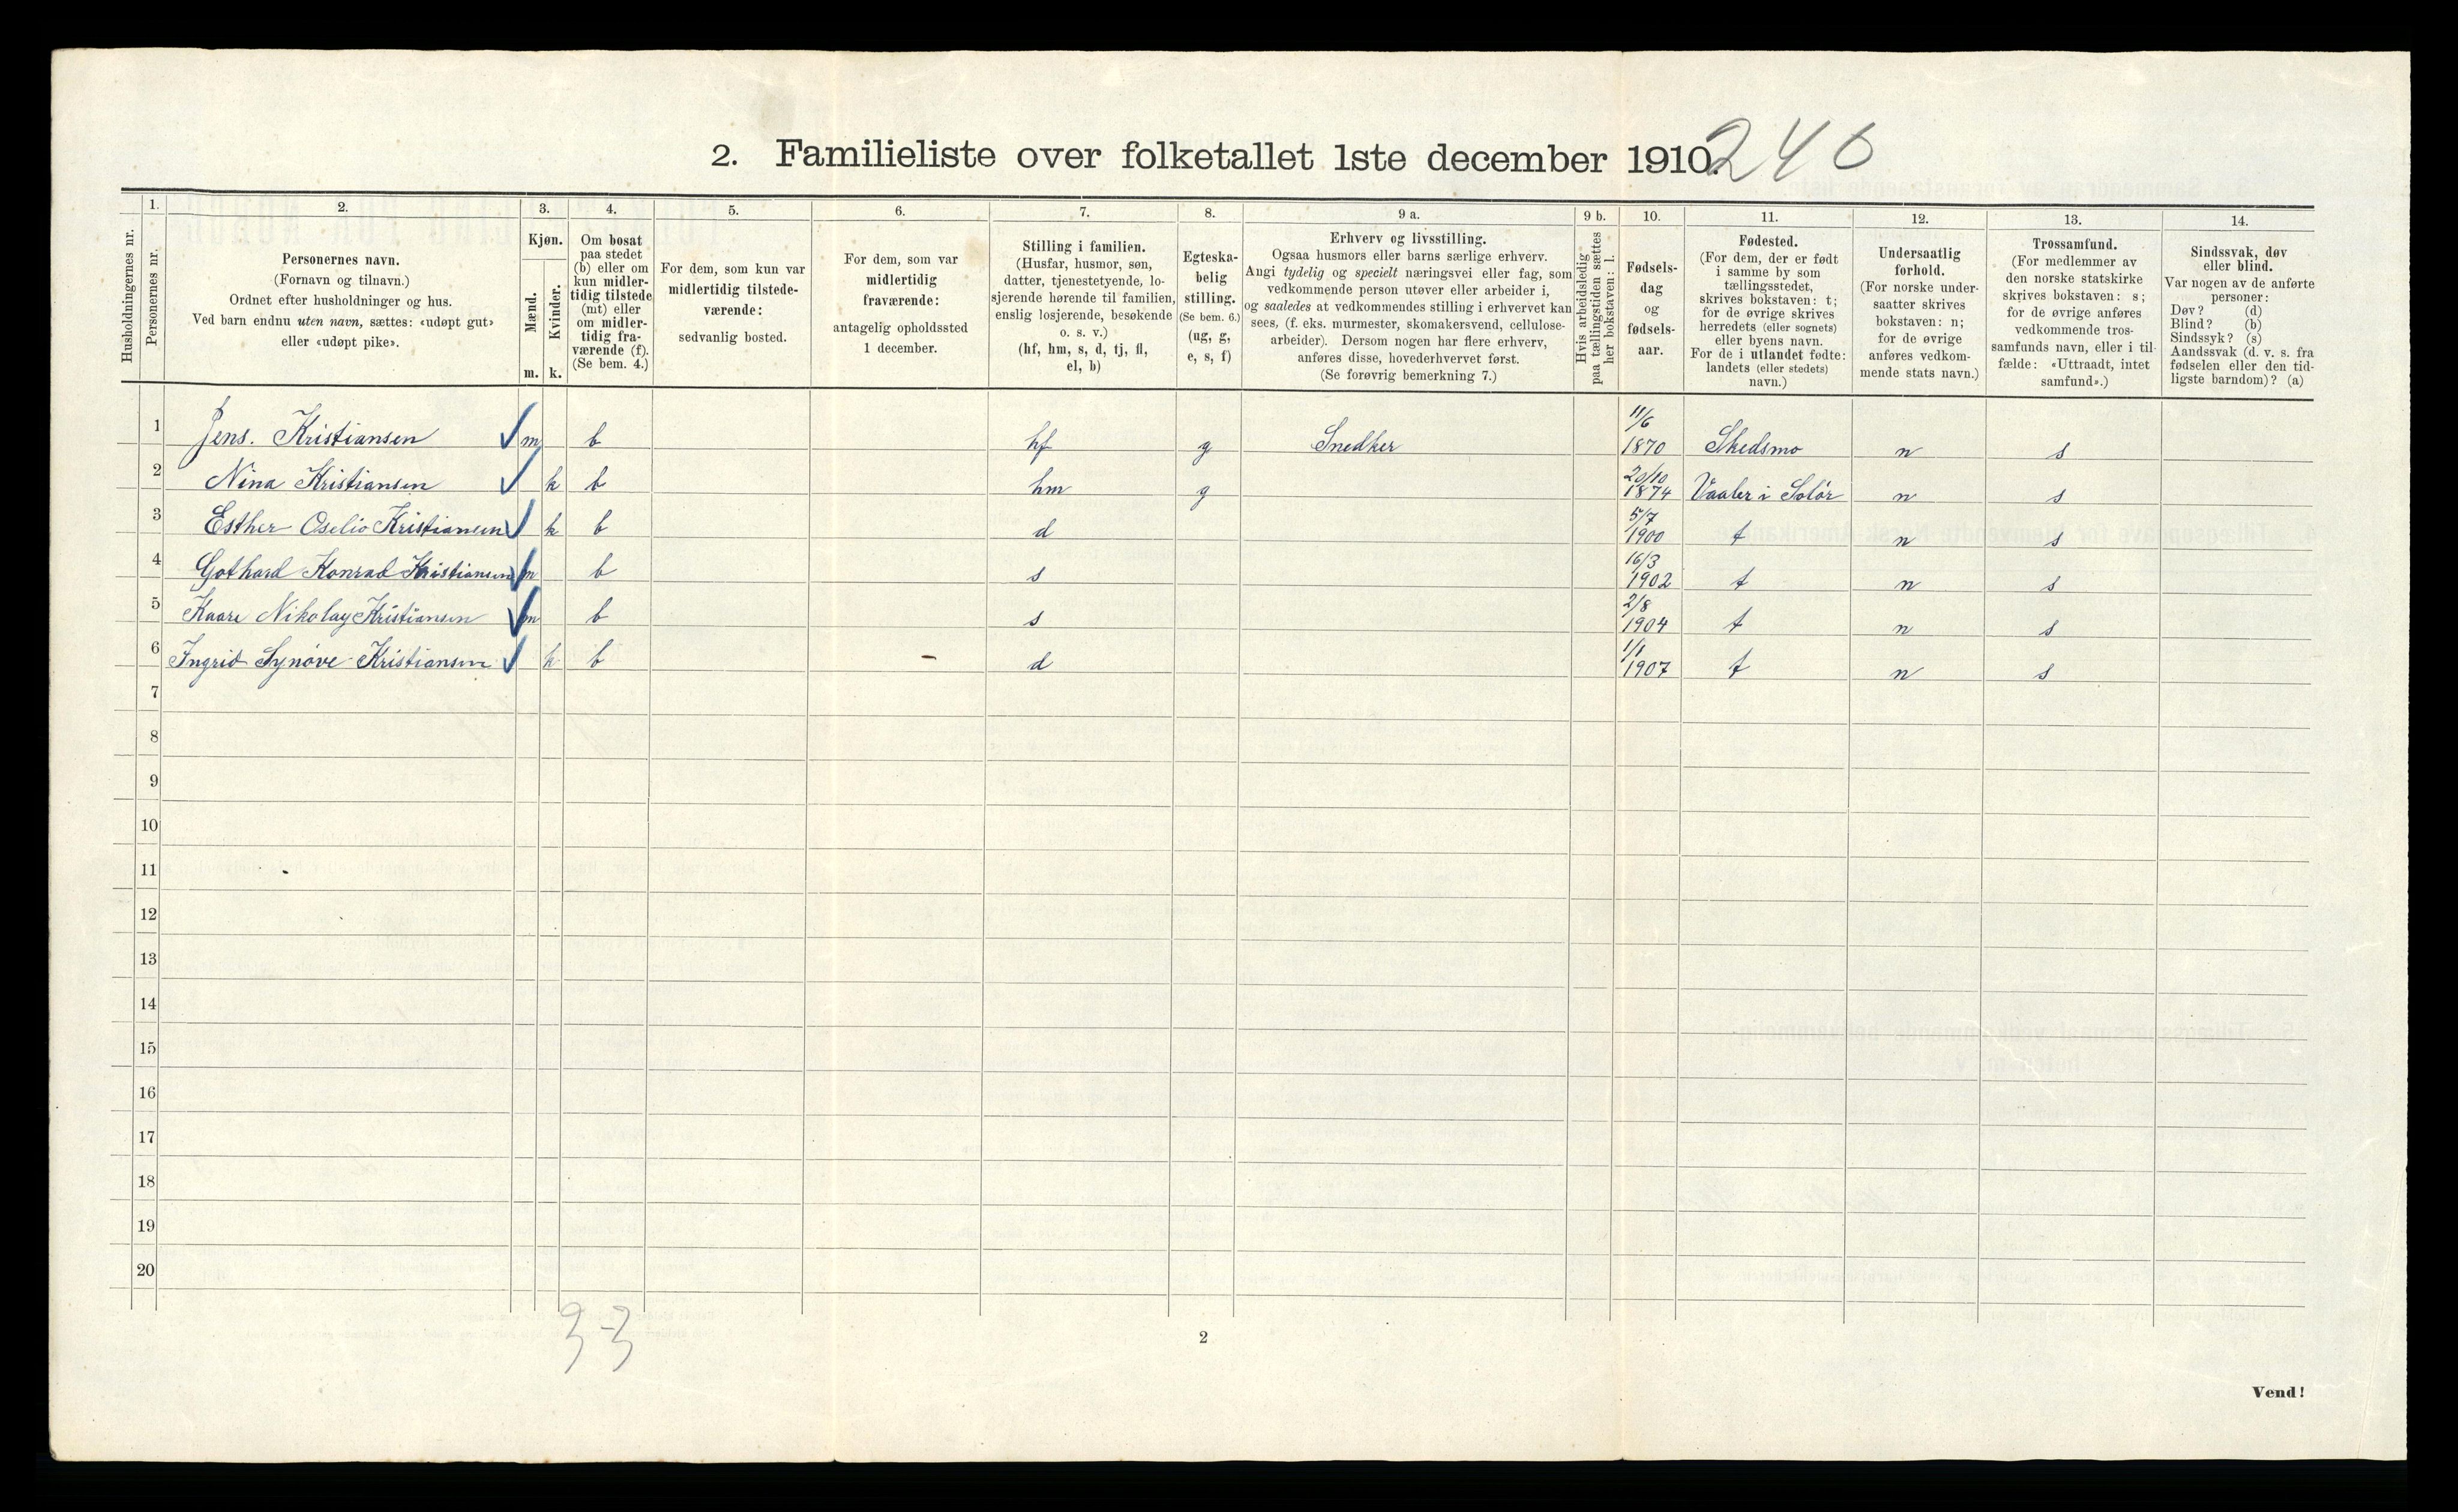 2. Familieliste over folketallet 1ste december 1910.
240
Husholdningernes nr.
1.
Personernes nr.
2.
Personernes navn.
(Fornavn og tilnavn.)
Ordnet efter husholdninger og hus.
Ved barn endnu uten navn, sættes: «udøpt gut»
eller «udøpt pike».
3.
Kjøn.
Mænd.
Kvinder.
m. k.
4.
Om bosat
paa stedet
(b) eller om
kun midler-
tidig tilstede
(mt) eller
om midler-
tidig fra-
værende (f).
(Se bem. 4.)
5.
For dem, som kun var
midlertidig tilstede-
værende:
sedvanlig bosted.
6.
For dem, som var
midlertidig
fraværende:
antagelig opholdssted
1 december.
7.
Stilling i familien.
(Husfar, husmor, søn,
datter, tjenestetyende, lo-
sjerende hørende til familien,
enslig losjerende, besøkende
o. s. v.)
(hf, hm, s, d, tj, fl,
el, b)
8.
Egteska-
belig
stilling.
(Se bem. 6.)
(ug, g,
e, s, f)
9 a.
Erhverv og livsstilling.
Ogsaa husmors eller barns særlige erhverv.
Angi tydelig og specielt næringsvei eller fag, som
vedkommende person utøver eller arbeider i,
og saaledes at vedkommendes stilling i erhvervet kan
sees, (f. eks. murmester, skomakersvend, cellulose-
arbeider). Dersom nogen har flere erhverv,
anføres disse, hovederhvervet først.
(Se forøvrig bemerkning 7.)
9 b.
Hvis arbeidsledig
paa tællingstiden sættes
her bokstaven: l.
10.
Fødsels-
dag
og
fødsels-
aar.
11.
Fødested.
(For dem, der er født
i samme by som
tællingsstedet,
skrives bokstaven: t;
for de øvrige skrives
herredets (eller sognets)
eller byens navn.
For de i utlandet fødte:
landets (eller stedets)
navn.)
12.
Undersaatlig
forhold.
(For norske under-
saatter skrives
bokstaven: n;
for de øvrige
anføres vedkom-
mende stats navn.)
13.
Trossamfund.
(For medlemmer av
den norske statskirke
skrives bokstaven: s;
for de øvrige anføres
vedkommende tros-
samfunds navn, eller i til-
fælde: «Uttraadt, intet
samfund».)
14.
Sindssvak, døv
eller blind.
Var nogen av de anførte
personer:
Døv? (d)
Blind? (b)
Sindssyk? (s)
Aandssvak (d. v. s. fra
fødselen eller den tid-
ligste barndom)? (a)
1 Jens. Kristiansen m b hf g Snedker 11/6 1870 Skedsmo n s
2 Nina Kristiansen k b hm g 20/10 1874 Vaaler i Solør n s
3 Esther Oselio Kristiansen k b d 5/7 1900 t n s
4 Gothard Konrad Kristiansen m b s 16/3 1902 t n s
5 Kaare Nikolay Kristiansen m b s 2/8 1904 t n s
6 Ingrid Synøve Kristiansen k b - d 1/1 1907 t n s
7
8
9
10
11
12
13
14
15
16
17
18
19
20
3-3
2
Vend!